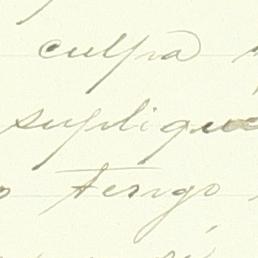 culpa
suplique
tengo